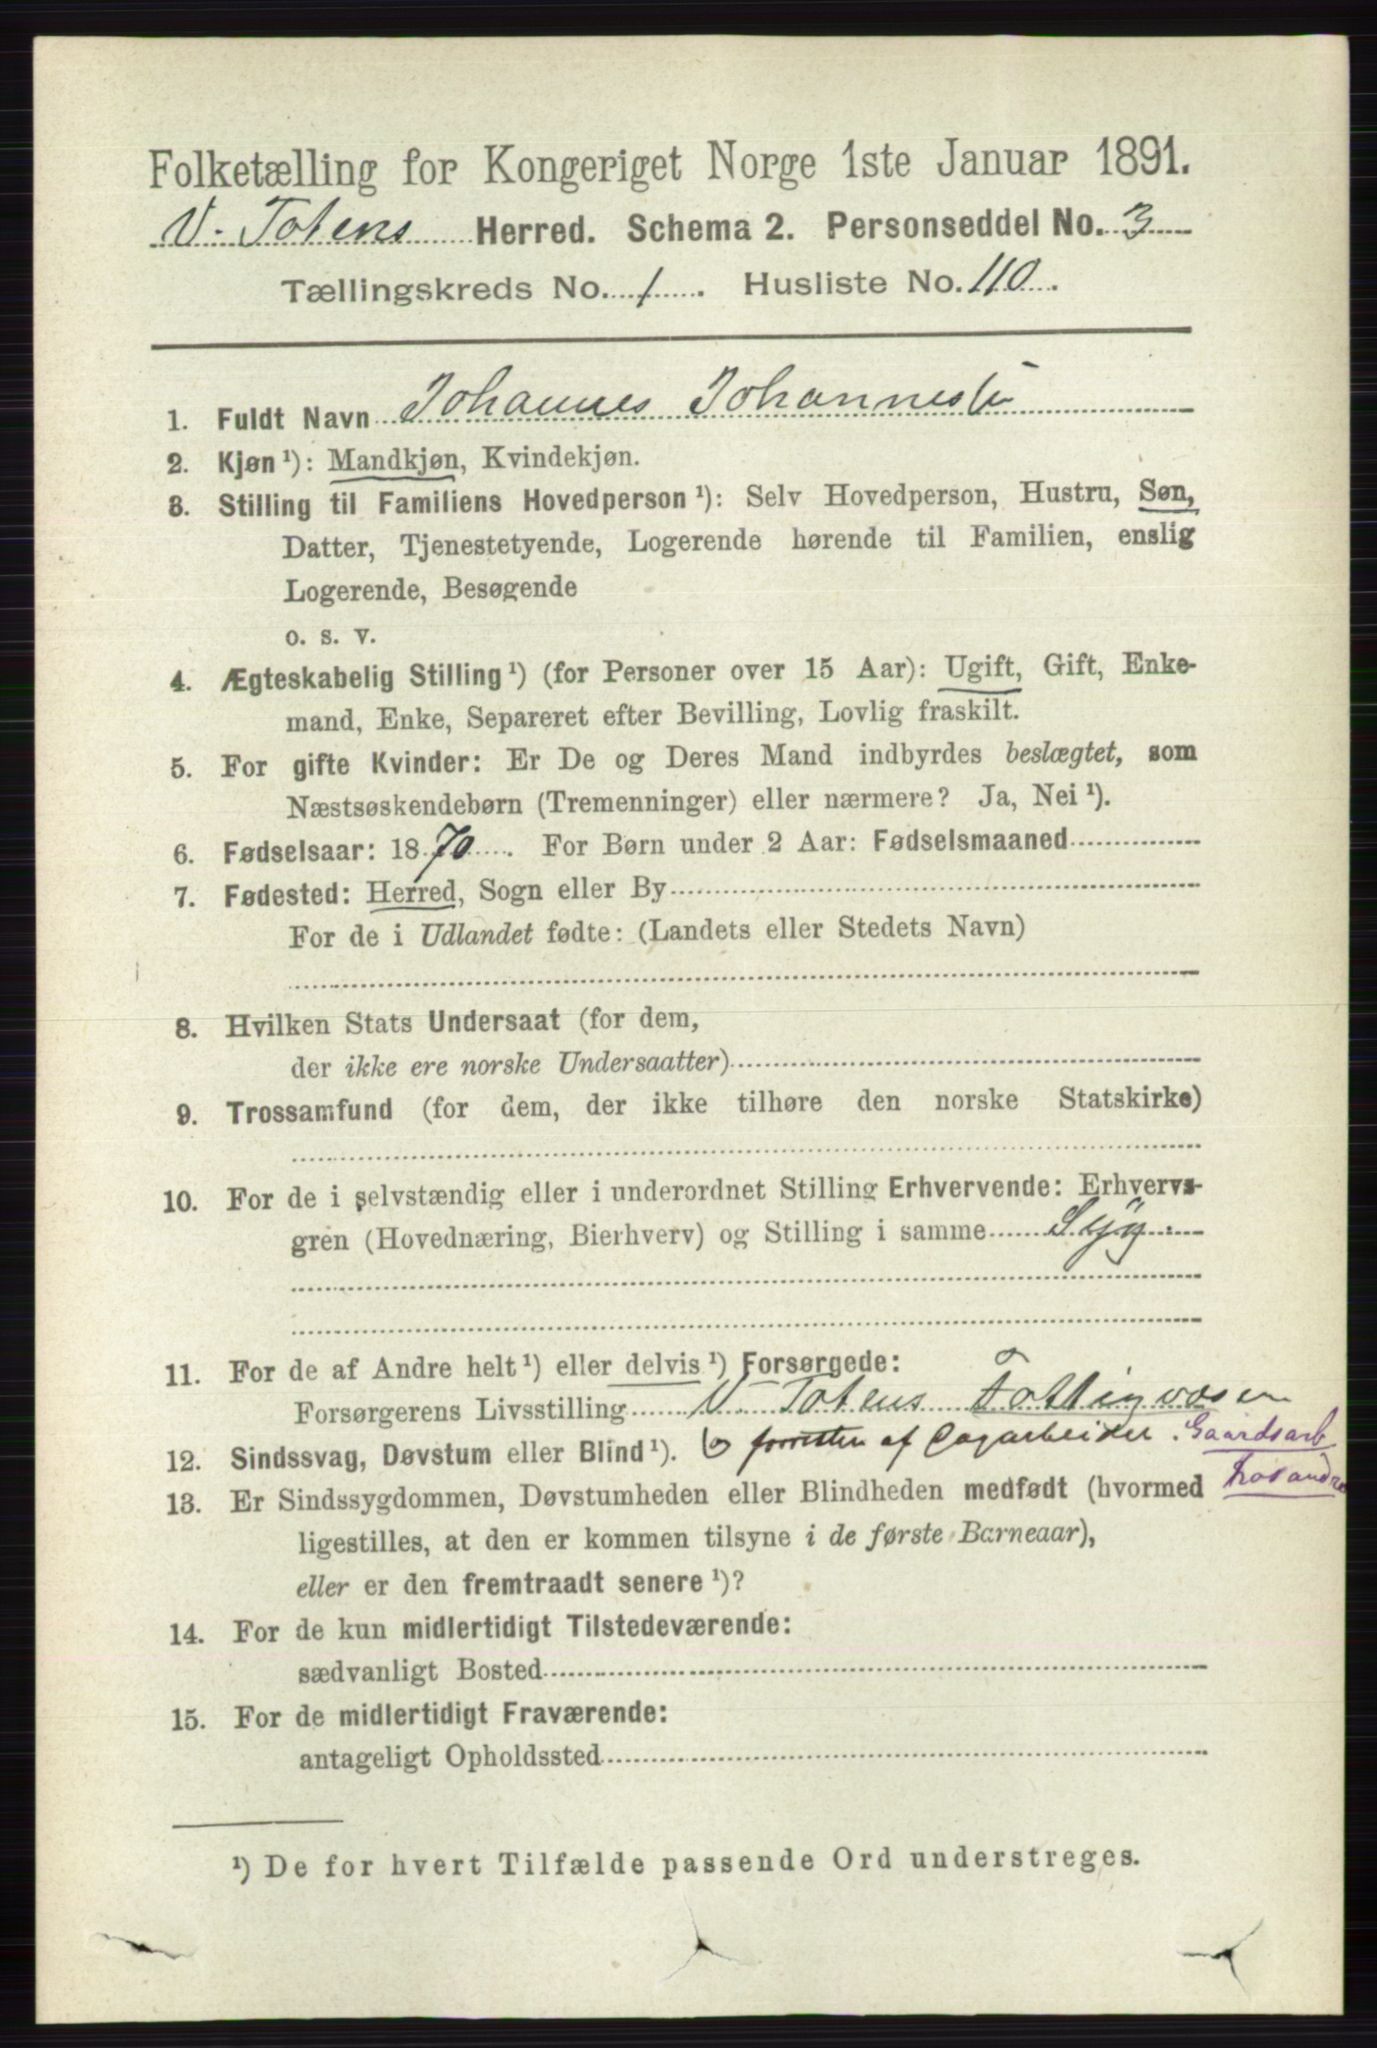 Folketælling for Kongeriget Norge 1ste Januar 1891.
V. Totens Herred. Schema 2. Personseddel No. 3
Tællingskreds No. 1. Husliste No. 110.
1. Fuldt Navn Johannes Johannesen
2. Kjøn ¹): Mandkjøn, Kvindekjøn.
3. Stilling til Familiens Hovedperson ¹): Selv Hovedperson, Hustru, Søn,
Datter, Tjenestetyende, Logerende hørende til Familien, enslig
Logerende, Besøgende
o. s. v.
4. Ægteskabelig Stilling ¹) (for Personer over 15 Aar): Ugift, Gift, Enke-
mand, Enke, Separeret efter Bevilling, Lovlig fraskilt.
5. For gifte Kvinder: Er De og Deres Mand indbyrdes beslægtet, som
Næstsøskendebørn (Tremenninger) eller nærmere? Ja, Nei ¹).
6. Fødselsaar: 1870. For Børn under 2 Aar: Fødselsmaaned
7. Fødested: Herred, Sogn eller By
For de i Udlandet fødte: (Landets eller Stedets Navn)
8. Hvilken Stats Undersaat (for dem,
der ikke ere norske Undersaatter)
9. Trossamfund (for dem, der ikke tilhøre den norske Statskirke)
10. For de i selvstændig eller i underordnet Stilling Erhvervende: Erhvervs-
gren (Hovednæring, Bierhverv) og Stilling i samme Syg.
11. For de af Andre helt ¹) eller delvis ¹) Forsørgede:
Forsørgerens Livsstilling V Totens Fattigvæsen
12. Sindssvag, Døvstum eller Blind ¹). o forresten af Dagarbeider. Gaardsarb
13. Er Sindssygdommen, Døvstumheden eller Blindheden medfødt (hvormed
ligestilles, at den er kommen tilsyne i de første Barneaar),
eller er den fremtraadt senere ¹)?
14. For de kun midlertidigt Tilstedeværende:
sædvanligt Bosted
15. For de midlertidigt Fraværende:
antageligt Opholdssted
¹) De for hvert Tilfælde passende Ord understreges.